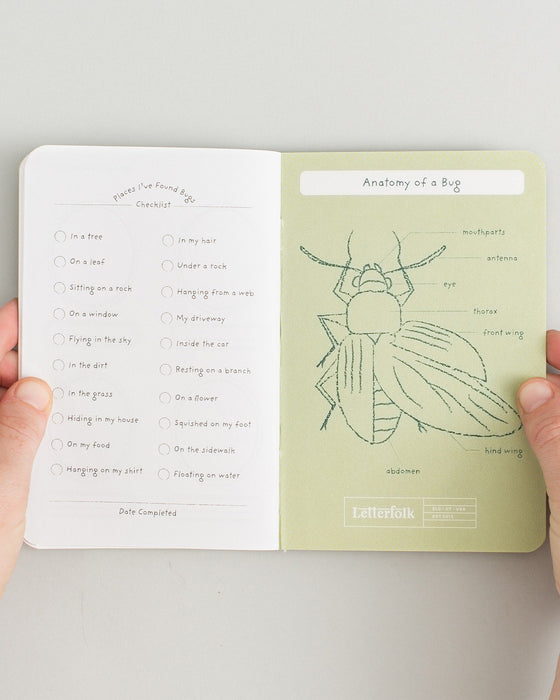 Places I've Found Bugs
Checklist
In a tree
On a leaf
Sitting on a rock
On a window
Flying in the sky
In the dirt
In the grass
Hiding in my house
On my food
Hanging on my shirt
In my hair
Under a rock
Hanging from a web
My driveway
Inside the car
Resting on a branch
On a flower
Squished on my foot
On the sidewalk
Floating on water
Date Completed
Anatomy of a Bug
mouthparts
antenna
eye
thorax
front wing
hind wing
abdomen
Letterfolk